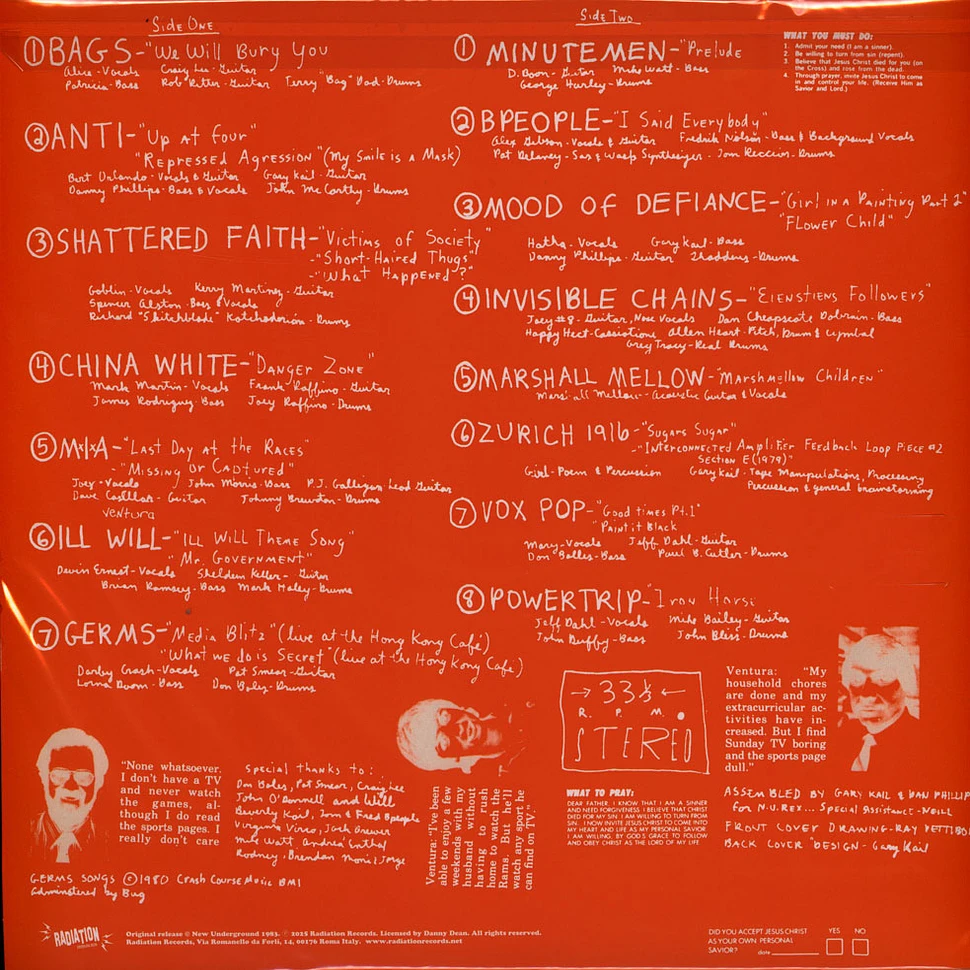 Side One
①BAGS-"We Will Bury You
Alice-Vocals Craig Lee-Guitar
Patricia-Bass Rob Ritter-Guitar Terry "Bag" Dad-Drums
②ANTI-"Up at four"
"Repressed Agression" (My Smile is a Mask)
Bert Orlando-Vocals & Guitar Gary Kail-Guitar
Danny Phillips-Bass & Vocals John McCarthy-Drums
③SHATTERED FAITH-"Victims of Society"
-"Short-Haired Thugs"
-"What Happened?"
Goblin-Vocals Kerry Martinez-Guitar
Spencer Alston-Bass & Vocals
Richard "Skitchblade" Katchadorian-Drums
④CHINA WHITE-"Danger Zone"
Mark Martin-Vocals Frank Raffino-Guitar
James Rodriguez-Bass Joey Raffino-Drums
⑤M•I•A-"Last Day at the Races"
-"Missing or Captured"
Joey-Vocals John Morris-Bass P.J. Galligan Lead Guitar
Dave Casillas-Guitar Johnny Brewton-Drums
Ventura
⑥ILL WILL-"Ill Will Theme Song"
"Mr. Government"
Devin Ernest-Vocals Sheldon Keller-Guitar
Brian Ramsey-Bass Mark Haley-Drums
⑦GERMS-"Media Blitz" (live at the Hong Kong Café)
"What we do is Secret" (live at the Hong Kong Café)
Darby Crash-Vocals Pat Smear-Guitar
Lorna Doom-Bass Don Boles-Drums
"None whatsoever.
I don't have a TV
and never watch
the games, al-
though I do read
the sports pages. I
really don't care
Special thanks to:
Don Boles, Pat Smear, Craig Lee
John O'Donnell and Will
Beverly Kail, Tom & Fred Bpeople
Virginia Vinca, Josh Brewer
Mike Watt, Andrea Enthal
Rodney, Brendan Moni, Jorge
Ventura: "I've been
able to enjoy a few
weekends with my
husband without
having to rush
home to watch the
Rams. But he'll
watch any sport he
can find on TV."
GERMS SONGS ©1980 Crash Course Music BMI
Administered by Bug
Side Two
① MINUTEMEN-"Prelude
D. Boon-Guitar Mike Watt-Bass
George Hurley-Drums
WHAT YOU MUST DO:
1. Admit your need (I am a sinner).
2. Be willing to turn from sin (repent).
3. Believe that Jesus Christ died for you (on
the Cross) and rose from the dead.
4. Through prayer, invite Jesus Christ to come
in and control your life. (Receive Him as
Savior and Lord.)
②BPEOPLE-"I Said Everybody"
Alex Gibson-Vocals & Guitar Fredrik Nilsen-Bass & Background Vocals
Pat Delaney-Sax & Wasp Synthesizer-Tom Reccion-Drums
③MOOD OF DEFIANCE-"Girl in a Painting Part 2"
"Flower Child"
Hatha-Vocals Gary Kail-Bass
Danny Phillips-Guitar Thaddeus-Drums
④INVISIBLE CHAINS-"Eienstiens Followers"
Joey #8-Guitar, Nose Vocals Dan Cheapscate Dobrain-Bass
Happy Hect-Cassiotone Allen Heart-Pitch, Drum & cymbal
Greg Tracy-Real Drums
⑤MARSHALL MELLOW-"Marshmellow Children"
Marshall Mellow-Acoustic Guitar & Vocals
⑥ZURICH 1916-"Sugars Sugar"
-"Interconnected Amplifier Feedback Loop Piece #2
Section E (1979)"
Girl-Poem & Percussion Gary Kail-Tape Manipulations, Processing
Percussion & general brainstorming
⑦VOX POP-"Good times Pt.1"
"Paint it Black
Mary-Vocals Jeff Dahl-Guitar
Don Bolles-Bass Paul B. Cutler-Drums
⑧POWERTRIP-"Iron Horse
Jeff Dahl-Vocals Mike Bailey-Guitar
John Duffy-Bass John Bliss-Drums
→ 33⅓ ←
R. P. M.
STEREO
Ventura: "My
household chores
are done and my
extracurricular ac-
tivities have in-
creased. But I find
Sunday TV boring
and the sports page
dull."
WHAT TO PRAY:
DEAR FATHER, I KNOW THAT I AM A SINNER
AND NEED FORGIVENESS. I BELIEVE THAT CHRIST
DIED FOR MY SIN. I AM WILLING TO TURN FROM
SIN. I NOW INVITE JESUS CHRIST TO COME INTO
MY HEART AND LIFE AS MY PERSONAL SAVIOR.
I AM WILLING, BY GOD'S GRACE TO FOLLOW
AND OBEY CHRIST AS THE LORD OF MY LIFE
ASSEMBLED BY GARY KAIL & DAN PHILLIP
for N.U.REX... Special Assistance-Neill
FRONT COVER DRAWING-RAY PETTIBO
BACK COVER DESIGN-Gary Kail
RADIATION
Original release © New Underground 1983. ℗ 2025 Radiation Records. Licensed by Danny Dean. All rights reserved.
Radiation Records, Via Romanello da Forlì, 14, 00176 Roma Italy. www.radiationrecords.net
DID YOU ACCEPT JESUS CHRIST YES NO
AS YOUR OWN PERSONAL
SAVIOR? date